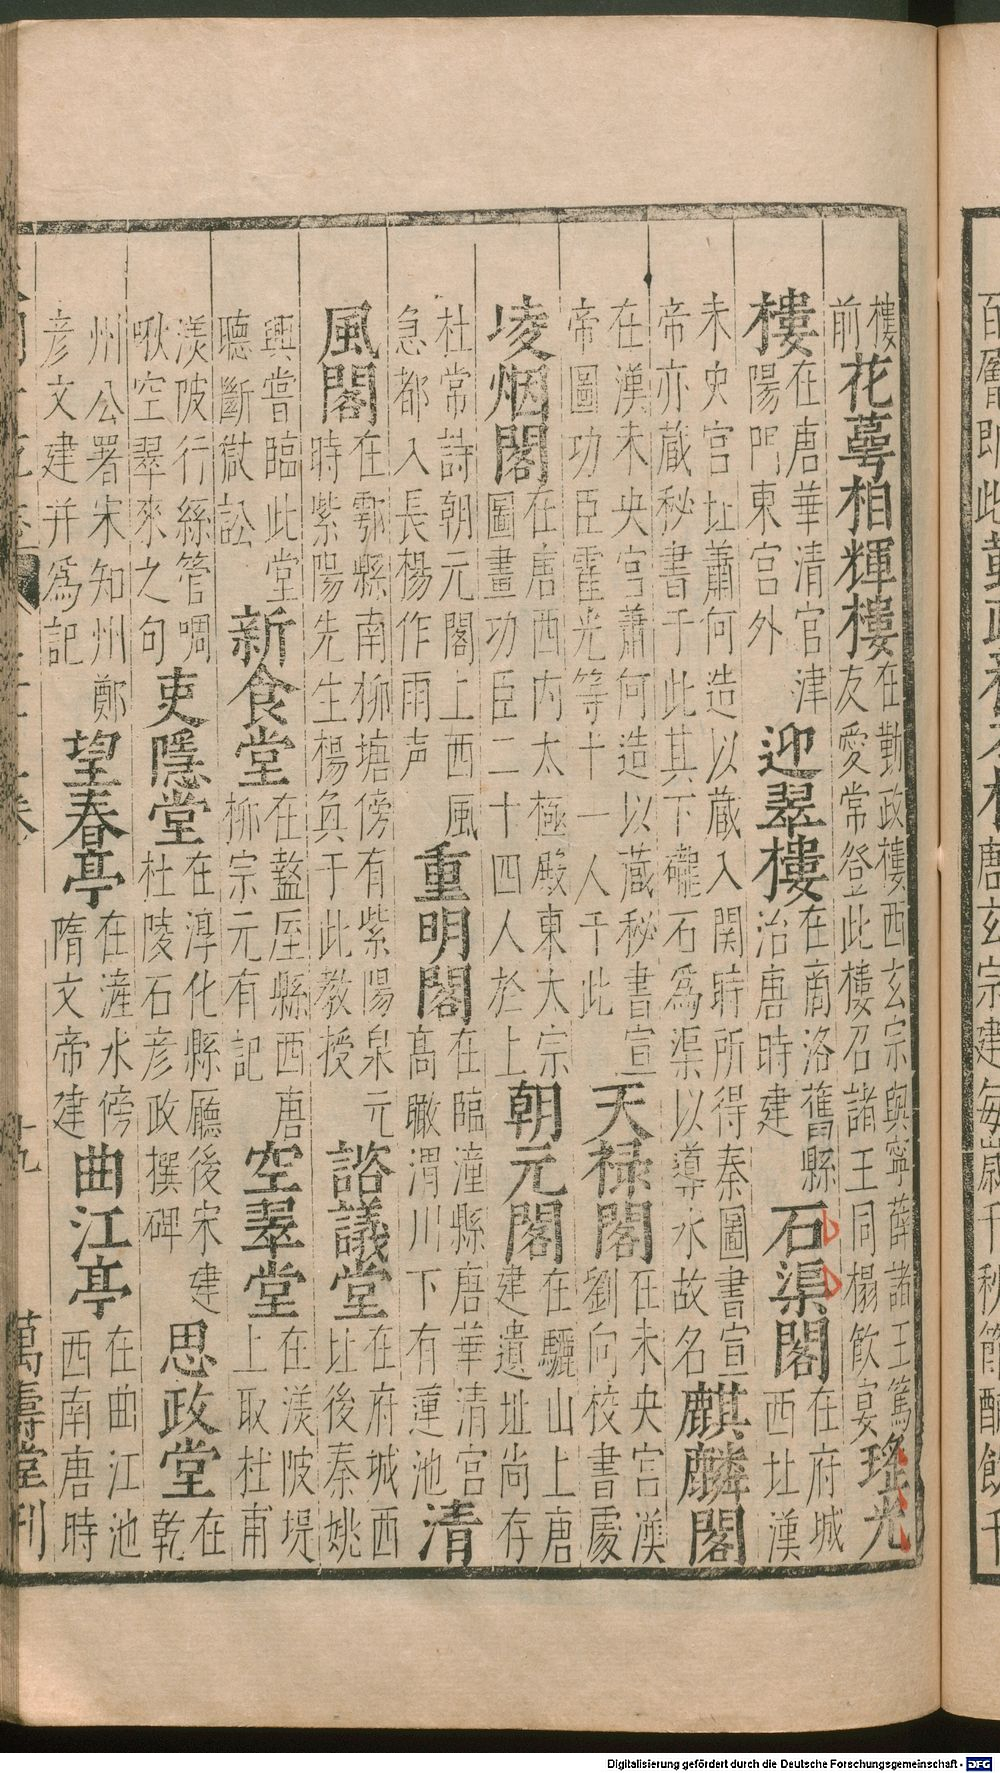 唐玄宗建每歲千秋節酺飲
樓前花萼相輝樓在勤政樓西玄宗與寧薛諸王篤友愛常登此樓召諸王同榻飲宴瑤光
樓在唐華清宮津陽門東宮外迎翠樓在商洛舊縣治唐時建石渠閣在府城西北漢
未央宮北蕭何造以藏入関時所得秦圖書宣帝亦藏秘書于此其下礲石為渠以導水故名麒麟閣
在漢未央宮蕭何造以藏秘書宣帝圖功臣霍光等十一人于此天祿閣在未央宮漢劉向校書處
凌烟閣在唐西内太極殿東太宗圖畫功臣二十四人於上朝元閣在驪山上唐建遺址尚存
杜常詩朝元閣上西風急都入長楊作雨声重明閣在臨潼縣唐華清宮高瞰渭川下有蓮池清
風閣在鄠縣南柳塘傍有紫陽泉元時紫陽先生楊奐于此教授諮議堂在府城西北後秦姚
興嘗臨此堂聽斷獄訟新食堂在盩厔縣西唐柳宗元有記空翠堂在渼陂堤上取杜甫
渼陂行絲管啁啾空翠來之句吏隱堂在淳化縣廳後宋建杜陵石彥政撰碑思政堂在乾
州公署宋知州鄭彥文建并為記望春亭在滻水傍隋文帝建曲江亭在曲江池西南唐時
十九 萬壽堂刊
Digitalisierung gefördert durch die Deutsche Forschungsgemeinschaft - DFG